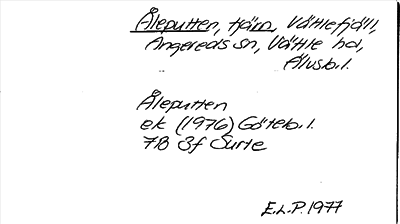 Åleputten, tjärn, Vättlefjäll,
Angereds sn, Vättle hd,
Älvsb.l.
Åleputten
ek (1976) Göteb.l.
7B 3f Surte
E.L.P. 1977